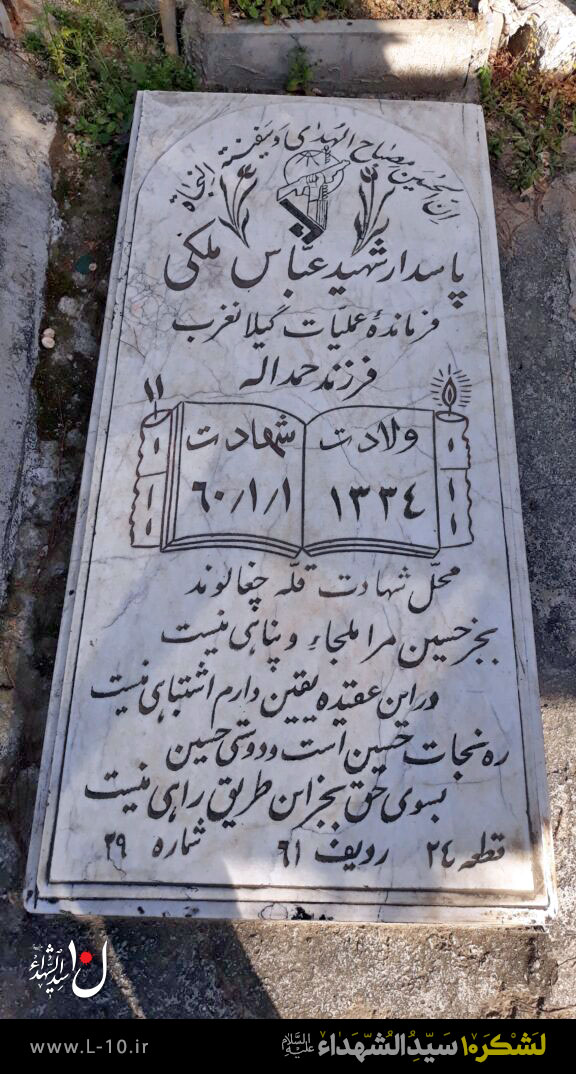 ان الحسین مصباح الهدی و سفینة النجاة
پاسدار شهید عباس ملکی
فرماندهٔ عملیات گیلانغرب
فرزند حمداله
ولادت شهادت
۱۳۳٤ ۶۰/۱/۱
محلّ شهادت قلّه چغالوند
بجز حسین مرا ملجاء و پناهی نیست
در این عقیده یقین دارم اشتباهی نیست
ره نجات حسین است و دوستی حسین
بسوی حق بجز این طریق راهی نیست
قطعه ۲٤ ردیف ۶۱ شماره ۲۹
سیدالشهداء
www.L-10.ir لَشْکَرِ۱۰ سَیِّدُالشُّهَداء علیه‌السلام